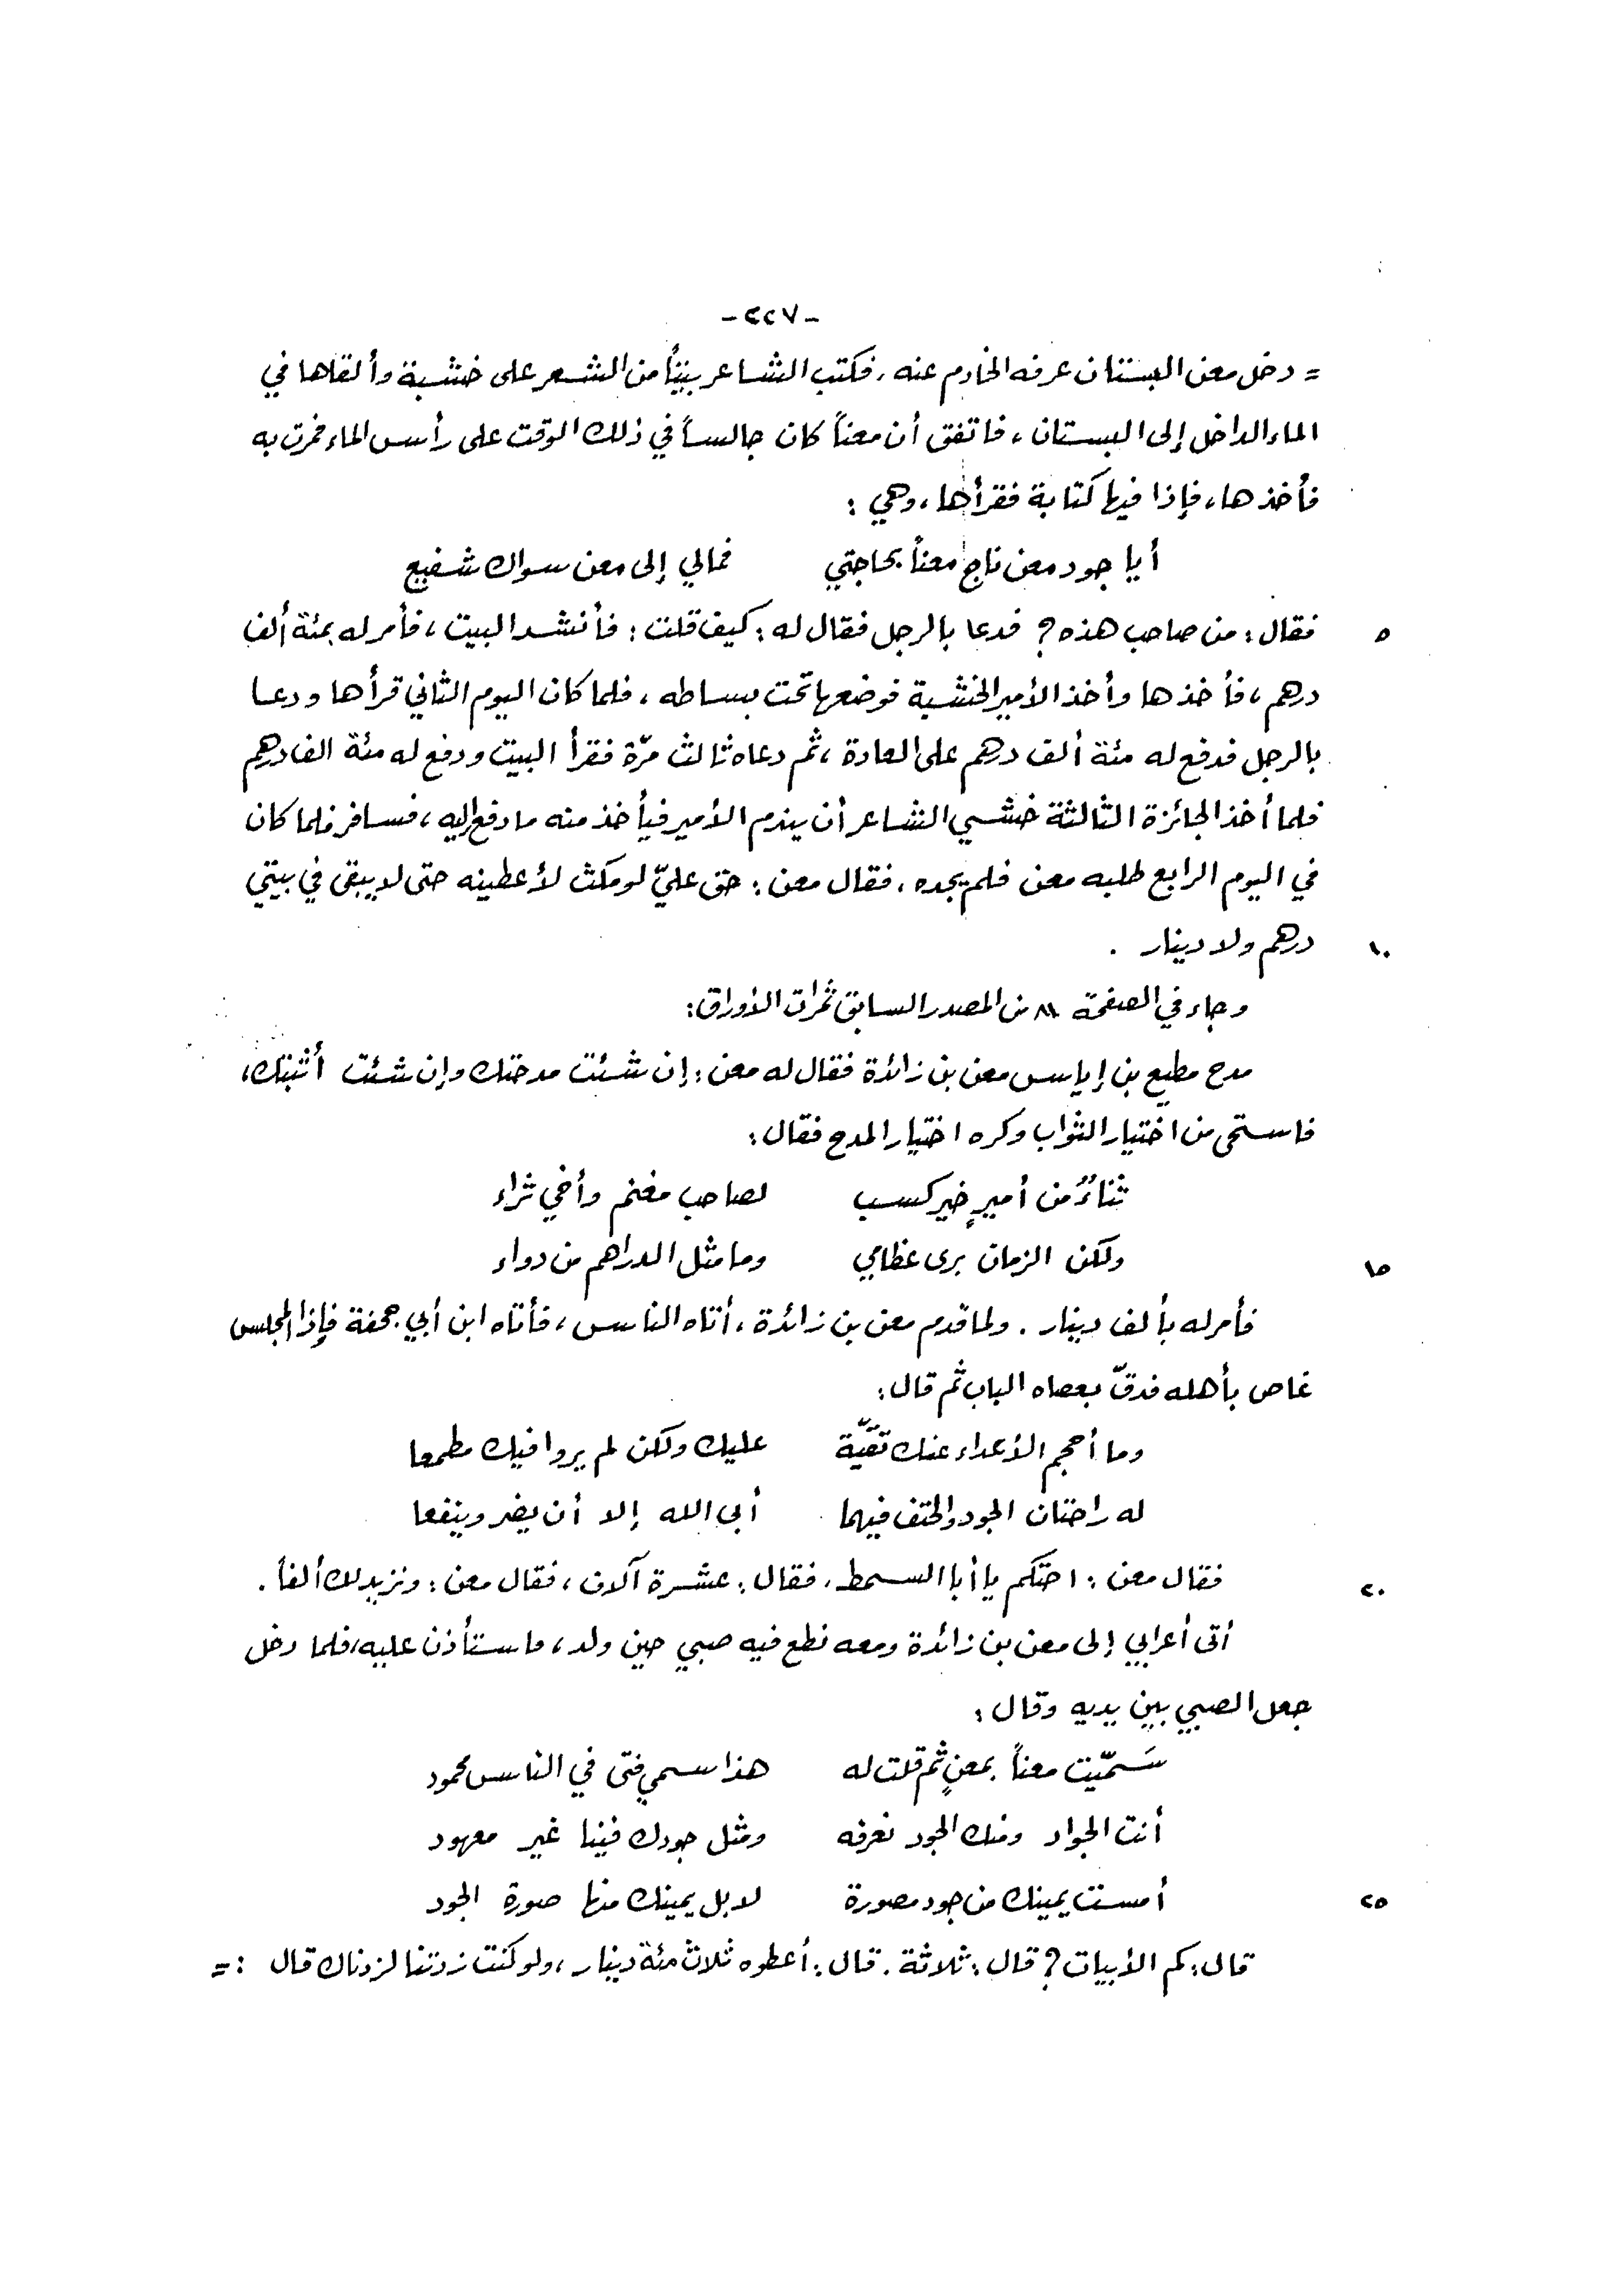 -٢٢٧-
= دخل معن البستان عرفه الخادم عنه، فكتب الشاعر بيتاً من الشعر على خشبة وألقاها في
الماء الداخل إلى البستان، فاتفق أن معناً كان جالساً في ذلك الوقت على رأس الماء فمرت به
فأخذها، فإذا فيها كتابة فقرأها، وهي :
أيا جود معن ناجِ معناً بحاجتي فمالي إلى معن سواك شفيع
٥ فقال : من صاحب هذه ؟ فدعا بالرجل فقال له : كيف قلت : فأنشد البيت، فأمر له بمئة ألف
درهم، فأخذها وأخذ الأمير الخشبة فوضعها تحت بساطه، فلما كان اليوم الثاني قرأها ودعا
بالرجل فدفع له مئة ألف درهم على العادة، ثم دعاه ثالث مرّة فقرأ البيت ودفع له مئة الف درهم
فلما أخذ الجائزة الثالثة خشي الشاعر أن يندم الأمير فيأخذ منه ما دفع إليه، فسافر فلما كان
في اليوم الرابع طلبه معن فلم يجده، فقال معن : حق عليّ لو مكث لأعطينه حتى لا يبقى في بيتي
١٠ درهم ولا دينار .
وجاء في الصفحة ٨١ من المصدر السابق ثمرات الأوراق:
مدح مطيع بن إياس معن بن زائدة فقال له معن : إن شئت مدحتك وإن شئت أثبتك،
فاستحى من اختيار الثواب وكره اختيار المدح فقال :
ثناءٌ من أميرٍ خير كسب لصاحب مغنم وأخي ثراء
١٥ ولكن الزمان برى عظامي وما مثل الدراهم من دواء
فأمر له بألف دينار . ولما قدم معن بن زائدة، أتاه الناس، فأتاه ابن أبي جحفة فإذا المجلس
غاص بأهله فدقّ بعصاه الباب ثم قال :
وما أحجم الأعداء عنك تقيّة عليك ولكن لم يروا فيك مطمعا
له راحتان الجود والحتف فيهما أبى الله إلا أن يضر وينفعا
٢٠ فقال معن : احتكم يا أبا السمط، فقال : عشرة آلاف، فقال معن : ونزيدك ألفاً .
أتى أعرابي إلى معن بن زائدة ومعه نطع فيه صبي حين ولد، فاستأذن عليه، فلما دخل
جعل الصبي بين يديه وقال :
سَمّيت معناً بمعنٍ ثم قلت له هذا سمي فتى في الناس محمود
أنت الجواد ومنك الجود نعرفه ومثل جودك فينا غير معهود
٢٥ أمست يمينك من جود مصورة لا بل يمينك منها صورة الجود
قال : كم الأبيات ؟ قال : ثلاثة . قال : أعطوه ثلاث مئة دينار، ولو كنت زدتنا لزدناك قال : =